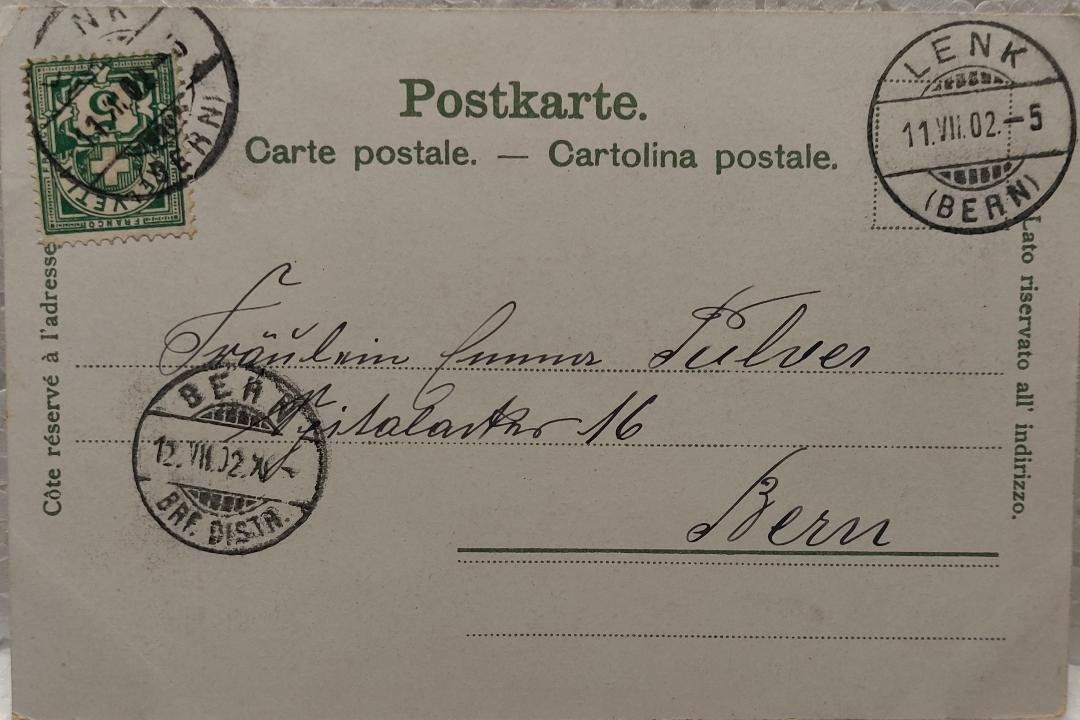 Postkarte.
Carte postale. — Cartolina postale.
LENK
11.VII.02.–5
(BERN)
5
HELVETIA
FRANCO
BERN)
Côte réservé à l'adresse
Lato riservato all' indirizzo.
Fräulein Emma Pulver
16
Bern
BERN
12.VII.02.
BRF. DISTR.